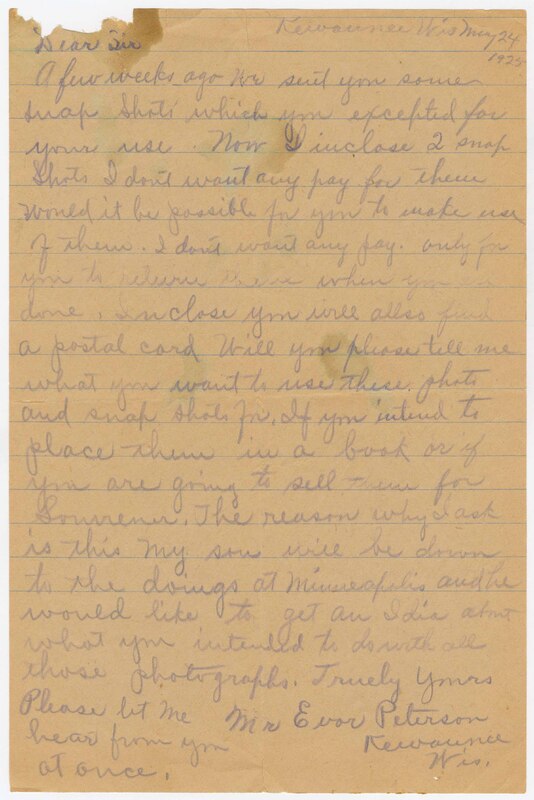 Kewaunee Wis May 24
1925
Dear Sir
A few weeks ago We sent you some
snap Shots which you excepted for
your use. Now I inclose 2 snap
Shots I dont want any pay for them
Would it be possible for you to make use
of them. I dont want any pay. only for
you to return when you
done. Inclose you will allso find
a postal card Will you please tell me
what you want to use these photo
and snap shots for. If you intend to
place them in a book or if
you are going to sell them for
Souvrener. The reason why I ask
is this My son will be down
to the doings at Minneapolis and he
would like to get an Idia about
what you intended to do with all
those photographs. Truely Yours
Please let Me Mr Evor Peterson
hear from you Kewaunee
at once. Wis.